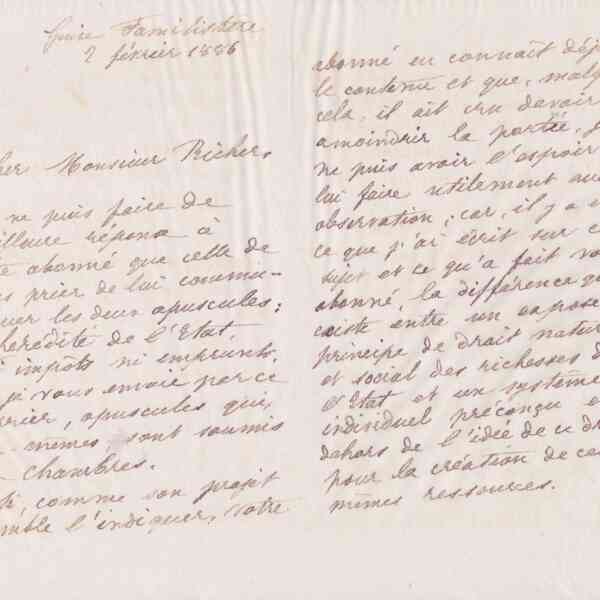 Guise Familistère
2 février 1886
her Monsieur Richer,
ne puis faire de
eilleure réponse à
te abonné que celle de
s prier de lui commu-
quer les deux opuscules:
hérédité de l'Etat
i impôts ni emprunts,
je vous envoie par ce
rrier, opuscules qui,
- mêmes, sont soumis
Chambres.
Si, comme son projet
mble l'indiquer, votre
abonné en connaît déjà
le contenu et que, malg
cela, il ait cru devoir
amoindrir la portée, j
ne puis avoir l'espoir
lui faire utilement auc
observation; car, il y a e
ce que j'ai écrit sur c
sujet et ce qu'a fait vo
abonné, la différence q
existe entre un exposé
principe de droit natur
et social des richesses d
l'Etat et un système
individuel préconçu e
dehors de l'idée de ce dr
pour la création de ces
mêmes ressources.